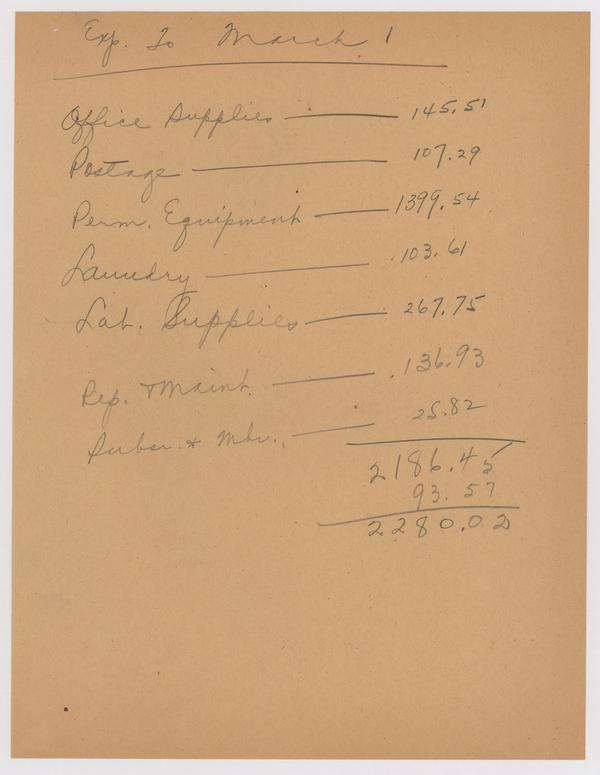 Exp. To March 1
Office Supplies — 145.51
Postage — 107.29
Perm. Equipment — 1399.54
Laundry — 103.61
Lab. Supplies — 267.75
Rep. & Maint. — 136.93
Subscr. & Mbr. — 25.82
2186.45
93.57
2280.02